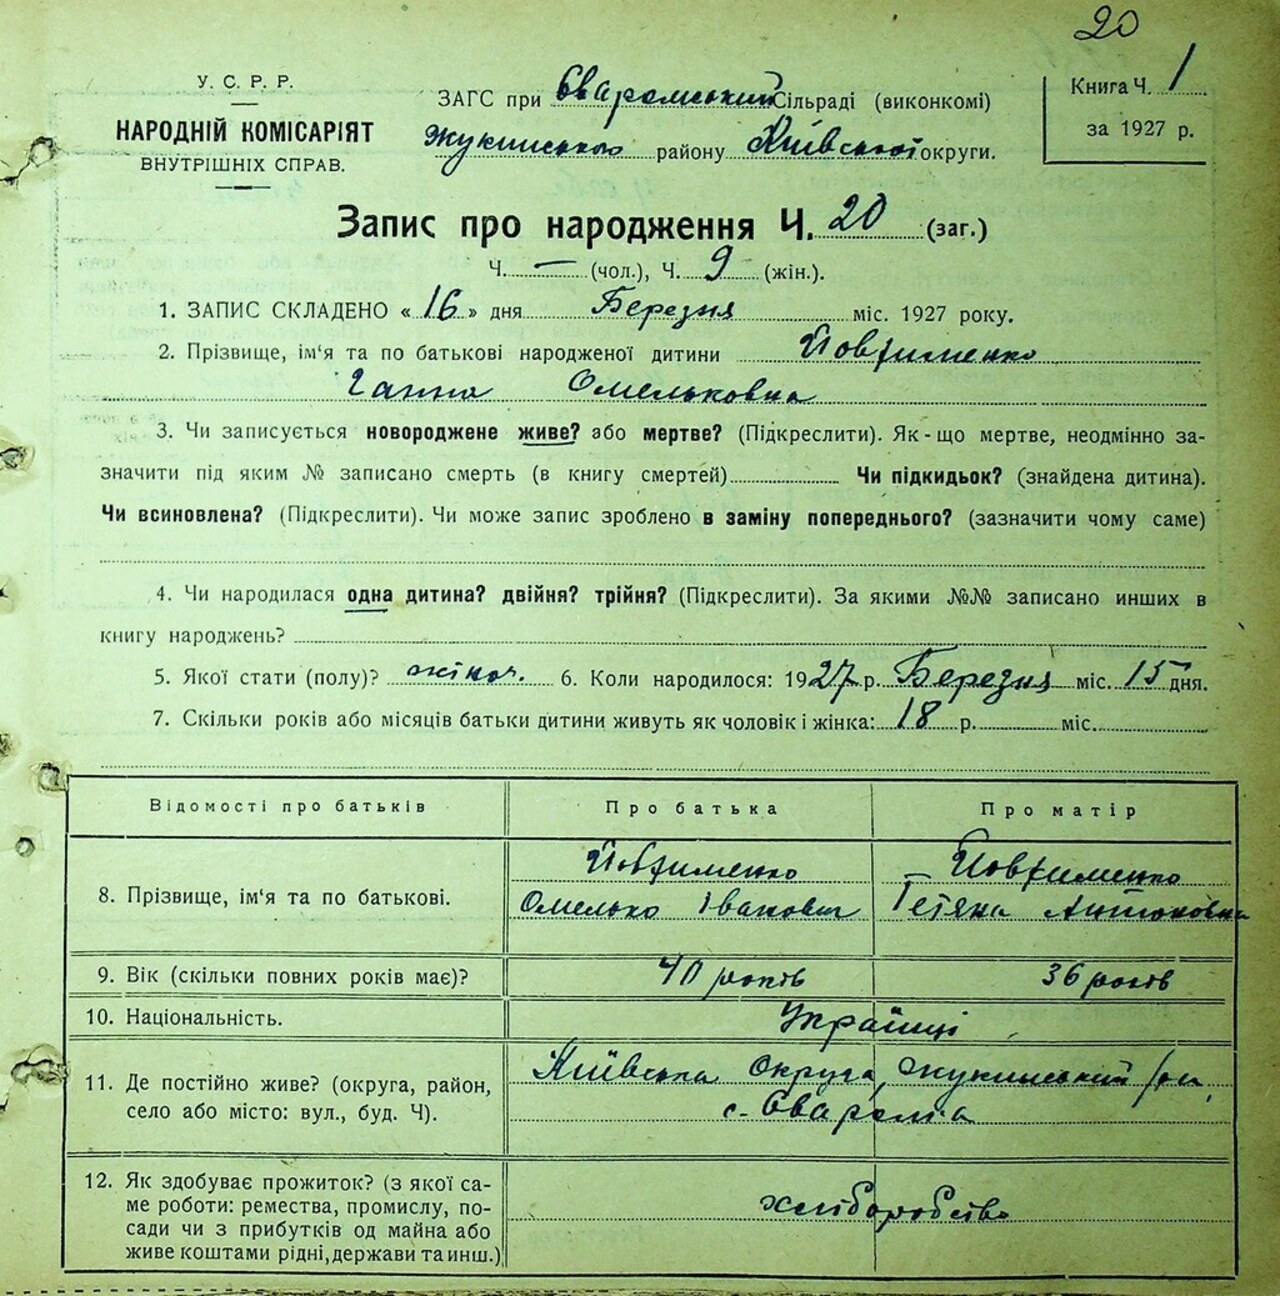 20
У. С. Р. Р.
НАРОДНІЙ КОМІСАРІЯТ
ВНУТРІШНІХ СПРАВ.
ЗАГС при Сваромський Сільраді (виконкомі)
Жукинського району Київської округи.
Книга Ч. 1
за 1927 р.
Запис про народження Ч. 20 (заг.)
Ч. — (чол.), Ч. 9 (жін.).
1. ЗАПИС СКЛАДЕНО « 16 » дня Березня міс. 1927 року.
2. Прізвище, ім‘я та по батькові народженої дитини Йовхименко
Ганна Омельковна
3. Чи записується новороджене живе? або мертве? (Підкреслити). Як-що мертве, неодмінно за-
значити під яким № записано смерть (в книгу смертей) Чи підкидьок? (знайдена дитина).
Чи всиновлена? (Підкреслити). Чи може запис зроблено в заміну попереднього? (зазначити чому саме)
4. Чи народилася одна дитина? двійня? трійня? (Підкреслити). За якими №№ записано инших в
книгу народжень?
5. Якої стати (полу)? жіноч. 6. Коли народилося: 1927 р. Березня міс. 15 дня.
7. Скільки років або місяців батьки дитини живуть як чоловік і жінка: 18 р. міс.
Відомості про батьків Про батька Про матір
8. Прізвище, ім‘я та по батькові. Йовхименко Омелько Іванович Йовхименко Тетяна Антоновна
9. Вік (скільки повних років має)? 40 років 36 років
10. Національність. Українці
11. Де постійно живе? (округа, район, Київська Округа, Жукинський р-н,
село або місто: вул., буд. Ч). с. Сваромла
12. Як здобуває прожиток? (з якої са-
ме роботи: ремества, промислу, по- хліборобство
сади чи з прибутків од майна або
живе коштами рідні, держави та инш.)